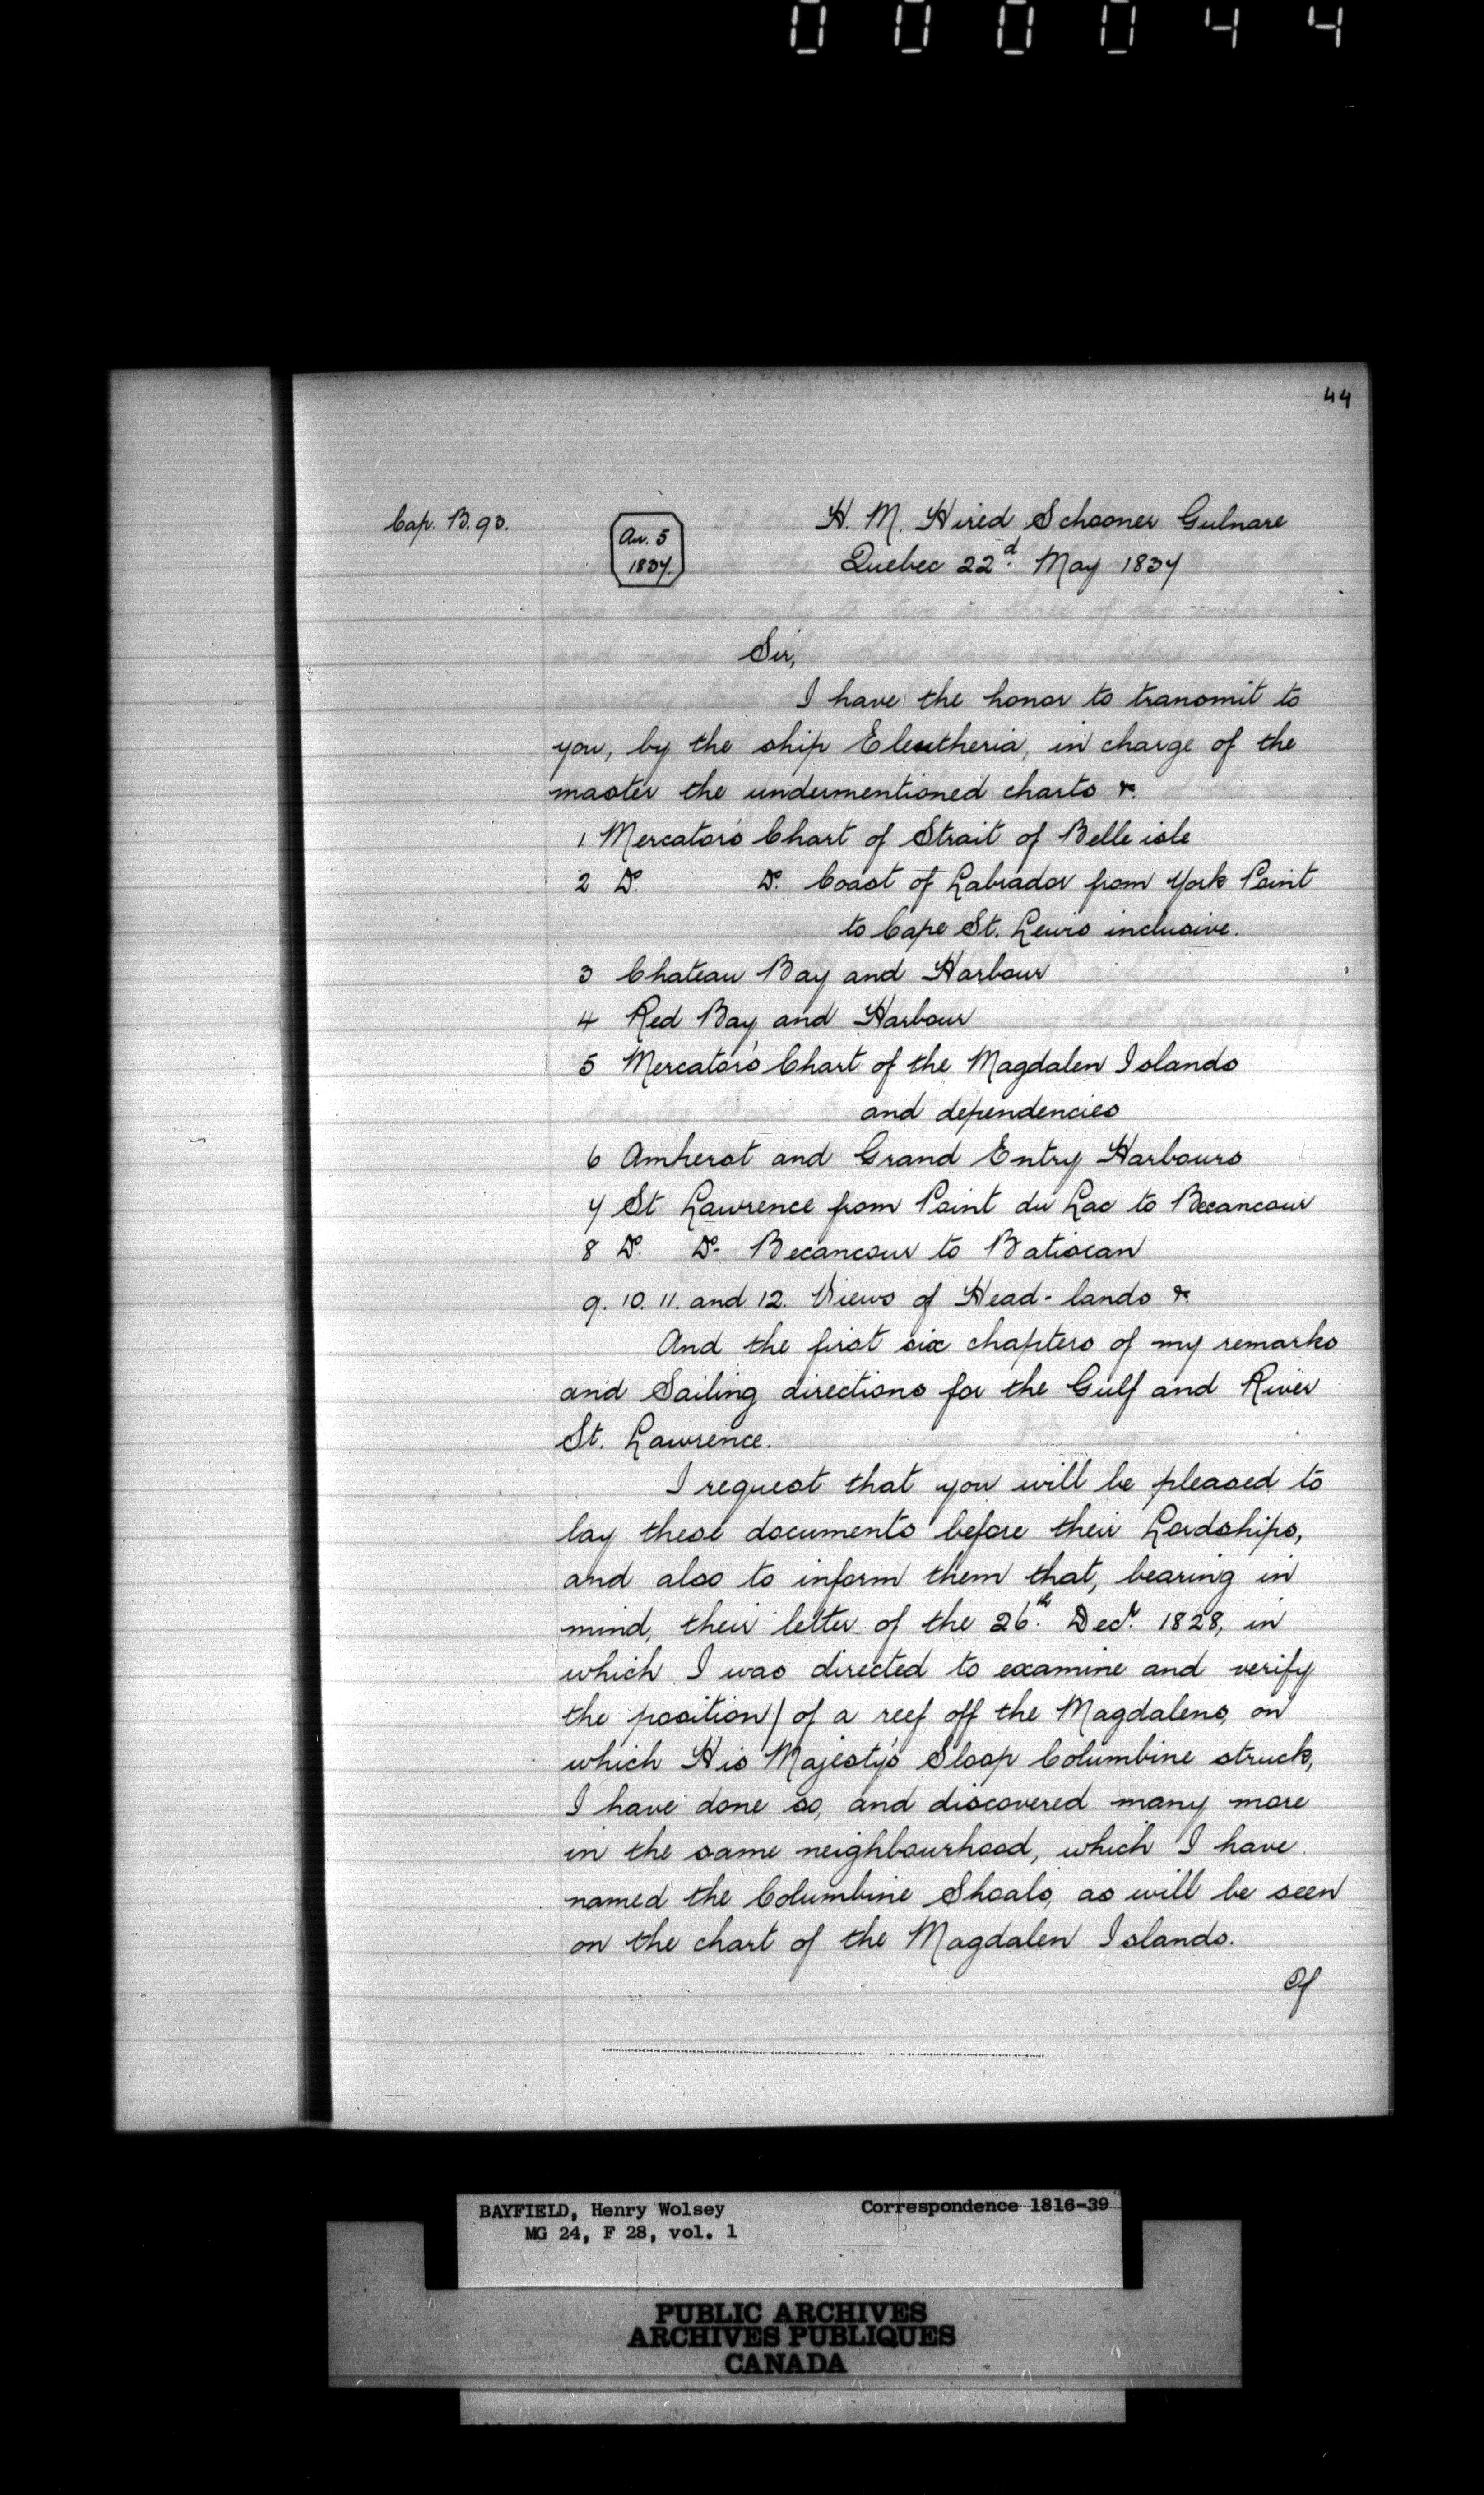 000044
44
Cap. B. 93.
Au. 5
1834.
H. M. Hired Schooner Gulnare
Quebec 22d. May 1834
Sir,
I have the honor to transmit to
you, by the ship Eleutheria, in charge of the
master the undermentioned charts &.
1 Mercator's Chart of Strait of Belle isle
2 Do. Do. Coast of Labrador from York Point
to Cape St. Lewis inclusive.
3 Chateau Bay and Harbour
4 Red Bay and Harbour
5 Mercator's Chart of the Magdalen Islands
and dependencies
6 Amherst and Grand Entry Harbours
7 St Lawrence from Point du Lac to Becancour
8 Do. Do- Becancour to Batiscan
9. 10. 11. and 12. Views of Head-lands &.
And the first six chapters of my remarks
and Sailing directions for the Gulf and River
St. Lawrence.
I request that you will be pleased to
lay these documents before their Lordships,
and also to inform them that, bearing in
mind, their letter of the 26th. Decr. 1828, in
which I was directed to examine and verify
the position/ of a reef off the Magdalens, on
which His Majesty's Sloop Columbine struck,
I have done so, and discovered many more
in the same neighbourhood, which I have
named the Columbine Shoals, as will be seen
on the chart of the Magdalen Islands.
Of
BAYFIELD, Henry Wolsey Correspondence 1816-39
MG 24, F 28, vol. 1
PUBLIC ARCHIVES
ARCHIVES PUBLIQUES
CANADA